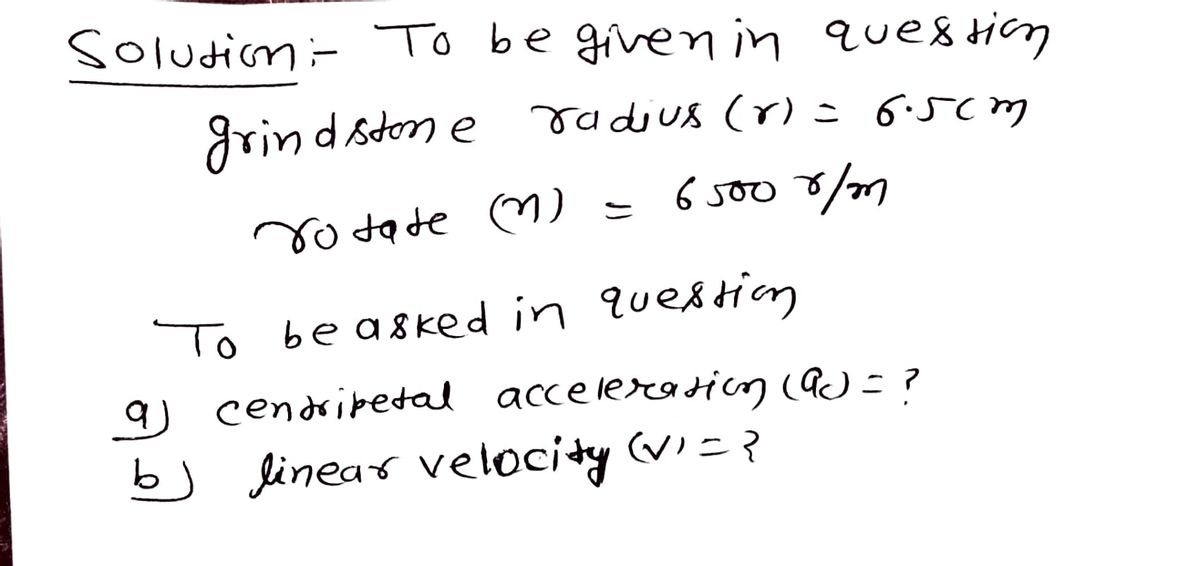 Solution:- To be given in question
grindstone radius (r) = 6.5cm
rotate (n) = 6500 r/m
To be asked in question
a) centripetal acceleration (ac) = ?
b) linear velocity (v) = ?